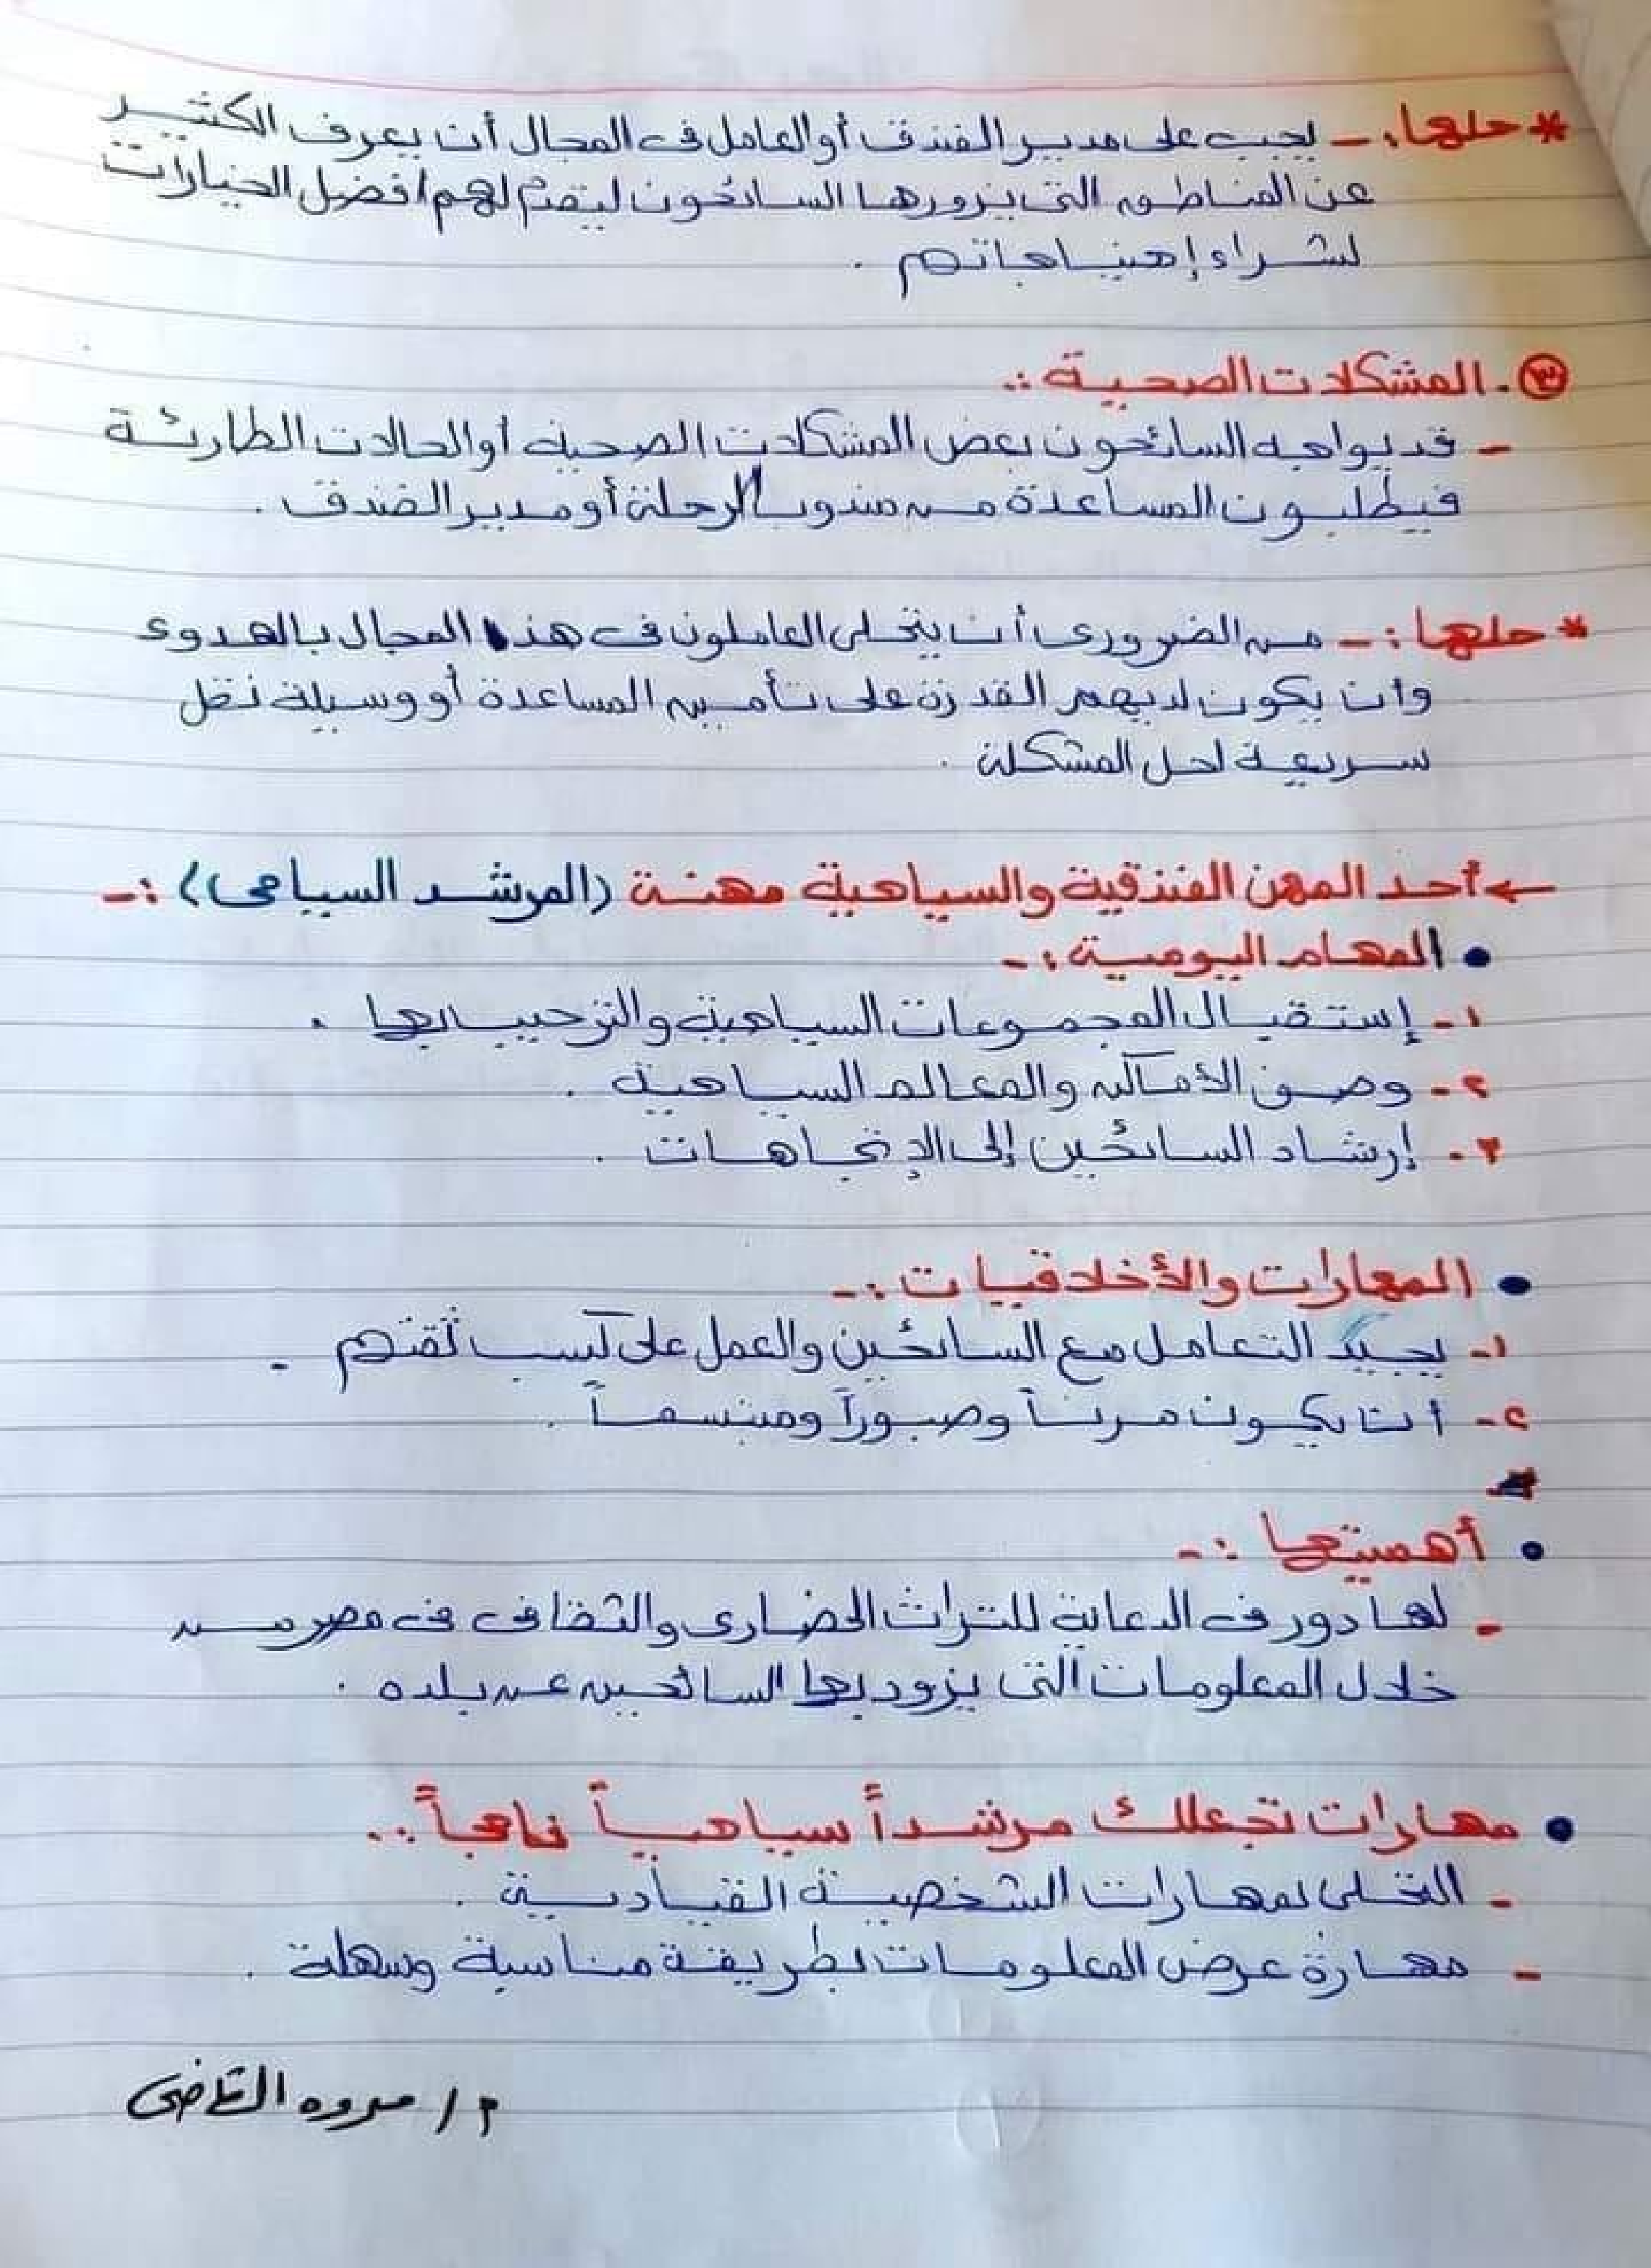 * حلها :- يجب على مدير الفندق أو العامل فى المجال أن يعرف الكثير
عن المناطق التى يزورها السائحون ليقدم لهم افضل الخيارات
لشراء إحتياجاتهم .
٣- المشكلات الصحية :.
- قد يواجه السائحون بعض المشكلات الصحية أو الحالات الطارئة
فيطلبون المساعدة من مندوب الرحلة أو مدير الفندق .
* حلها :- من الضرورى أن يتحلى العاملون فى هذا المجال بالهدوء
وان يكون لديهم القدرة على تأمين المساعدة أو وسيلة نقل
سريعة لحل المشكلة .
← أحد المهن الفندقية والسياحية مهنة (المرشد السياحى) :-
• المهام اليومية :-
١- إستقبال المجموعات السياحية والترحيب بها .
٢- وصف الأماكن والمعالم السياحية .
٣- إرشاد السائحين إلى الإتجاهات .
• المهارات والأخلاقيات :-
١- يجيد التعامل مع السائحين والعمل على كسب ثقتهم .
٢- أن يكون مرناً وصبوراً ومبتسماً .
• أهميتها :-
- لها دور فى الدعاية للتراث الحضارى والثقافى فى مصر من
خلال المعلومات التى يزود بها السائحين عن بلده .
• مهارات تجعلك مرشداً سياحياً ناجحاً :.
- التحلى بمهارات الشخصية القيادية .
- مهارة عرض المعلومات بطريقة مناسبة وسهلة .
م / مروه القاضى